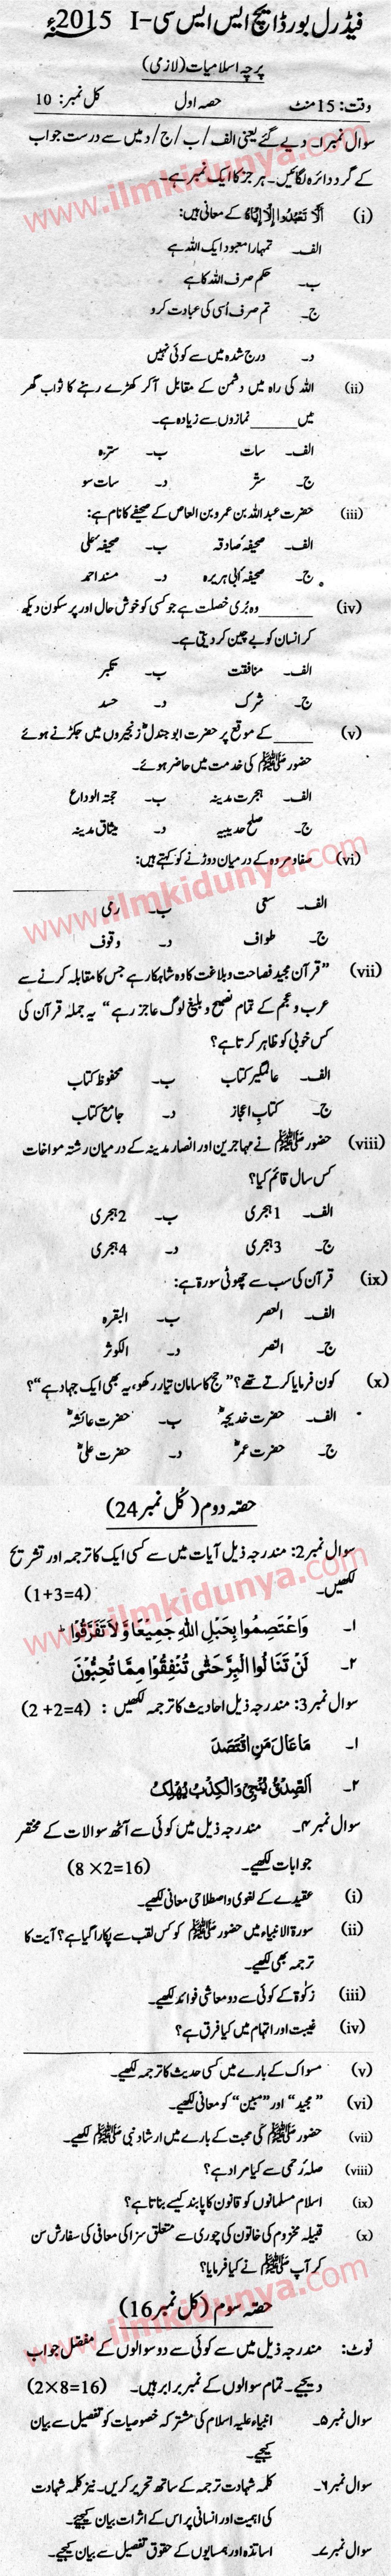 فیڈرل بورڈ ایچ ایس ایس سی -I 2015ء
پرچہ اسلامیات (لازمی)
وقت: 15 منٹ حصہ اول کل نمبر: 10
سوال نمبر۱۔ دیے گئے یعنی الف/ب/ج/د میں سے درست جواب
کے گرد دائرہ لگائیں۔ ہر جز کا ایک نمبر ہے۔
(i) اَلَّا تَعْبُدُوا اِلَّا اِیَّاہُ کے معانی ہیں:
الف۔ تمہارا معبود ایک اللہ ہے
ب۔ حکم صرف اللہ کا ہے
ج۔ تم صرف اُسی کی عبادت کرو
د۔ درج شدہ میں سے کوئی نہیں
(ii) اللہ کی راہ میں دشمن کے مقابل آکر کھڑے رہنے کا ثواب گھر
میں ______ نمازوں سے زیادہ ہے۔
الف۔ سات ب۔ سترہ
ج۔ ستّر د۔ سات سو
(iii) حضرت عبداللہ بن عمرو بن العاص کے صحیفے کا نام ہے:
الف۔ صحیفۂ صادقہ ب۔ صحیفہ علی
ج۔ صحیفہ اُبی ہریرہ د۔ مسند احمد
(iv) ______ وہ بُری خصلت ہے جو کسی کو خوش حال اور پر سکون دیکھ
کر انسان کو بے چین کر دیتی ہے۔
الف۔ منافقت ب۔ تکبر
ج۔ شرک د۔ حسد
(v) ______ کے موقع پر حضرت ابو جندلؓ زنجیروں میں جکڑے ہوئے
حضور ﷺ کی خدمت میں حاضر ہوئے۔
الف۔ ہجرت مدینہ ب۔ حجۃ الوداع
ج۔ صلح حدیبیہ د۔ میثاق مدینہ
(vi) صفا و مروہ کے درمیان دوڑنے کو کہتے ہیں:
الف۔ سعی ب۔ رمی
ج۔ طواف د۔ وقوف
(vii) "قرآن مجید فصاحت و بلاغت کا وہ شاہکار ہے جس کا مقابلہ کرنے سے
عرب و عجم کے تمام فصیح و بلیغ لوگ عاجز رہے" یہ جملہ قرآن کی
کس خوبی کو ظاہر کرتا ہے؟
الف۔ عالمگیر کتاب ب۔ محفوظ کتاب
ج۔ کتابِ اعجاز د۔ جامع کتاب
(viii) حضور ﷺ نے مہاجرین اور انصار مدینہ کے درمیان رشتہ مواخات
کس سال قائم کیا؟
الف۔ 1 ہجری ب۔ 2 ہجری
ج۔ 3 ہجری د۔ 4 ہجری
(ix) قرآن کی سب سے چھوٹی سورۃ ہے:
الف۔ العصر ب۔ البقرہ
ج۔ النصر د۔ الکوثر
(x) کون فرمایا کرتے تھے؟ "حج کا سامان تیار رکھو، یہ بھی ایک جہاد ہے"؟
الف۔ حضرت خدیجہؓ ب۔ حضرت عائشہؓ
ج۔ حضرت عمرؓ د۔ حضرت علیؓ
حصّہ دوم (کُل نمبر 24)
سوال نمبر 2: مندرجہ ذیل آیات میں سے کسی ایک کا ترجمہ اور تشریح
لکھیں۔ (1+3=4)
۱۔ وَاعْتَصِمُوا بِحَبْلِ اللّٰہِ جَمِیْعًا وَّلَا تَفَرَّقُوْا
۲۔ لَنْ تَنَالُوا الْبِرَّ حَتّٰی تُنْفِقُوْا مِمَّا تُحِبُّوْنَ
سوال نمبر 3: مندرجہ ذیل احادیث کا ترجمہ لکھیں: (2+2=4)
۱۔ مَا عَالَ مَنِ اقْتَصَدَ
۲۔ اَلصِّدْقُ یُنْجِیْ وَالْکِذْبُ یُھْلِکُ
سوال نمبر ۴۔ مندرجہ ذیل میں کوئی سے آٹھ سوالات کے مختصر
جوابات لکھیے۔ (8×2=16)
(i) عقیدے کے لغوی و اصطلاحی معانی لکھیے۔
(ii) سورۃ الانبیاء میں حضور ﷺ کو کس لقب سے پکارا گیا ہے؟ آیت کا
ترجمہ بھی لکھیے۔
(iii) زکٰوۃ کے کوئی سے دو معاشی فوائد لکھیے۔
(iv) غیبت اور اتہام میں کیا فرق ہے؟
(v) مسواک کے بارے میں کسی حدیث کا ترجمہ لکھیے۔
(vi) "مجید" اور "مبین" کو معانی لکھیے۔
(vii) حضور ﷺ کی محبت کے بارے میں ارشاد نبی ﷺ لکھیے۔
(viii) صلہ رَحمی سے کیا مراد ہے؟
(ix) اسلام مسلمانوں کو قانون کا پابند کیسے بناتا ہے؟
(x) قبیلہ مخزوم کی خاتون کی چوری سے متعلق سزا کی معافی کی سفارش سن
کر آپ ﷺ نے کیا فرمایا؟
حصّہ سوم (کل نمبر 16)
نوٹ: مندرجہ ذیل میں سے کوئی سے دو سوالوں کے مفصل جواب
دیجیے۔ تمام سوالوں کے نمبر برابر ہیں۔ (2×8=16)
سوال نمبر ۵۔ انبیاء علیہ اسلام کی مشترکہ خصوصیات کو تفصیل سے بیان
کیجیے۔
سوال نمبر ۶۔ کلمہ شہادت ترجمہ کے ساتھ تحریر کریں۔ نیز کلمہ شہادت
کی اہمیت اور انسانی پر اس کے اثرات بیان کیجیے۔
سوال نمبر ۷۔ اساتذہ اور ہمسایوں کے حقوق تفصیل سے بیان کیجیے۔
www.ilmkidunya.com
www.ilmkidunya.com
www.ilmkidunya.com
www.ilmkidunya.com